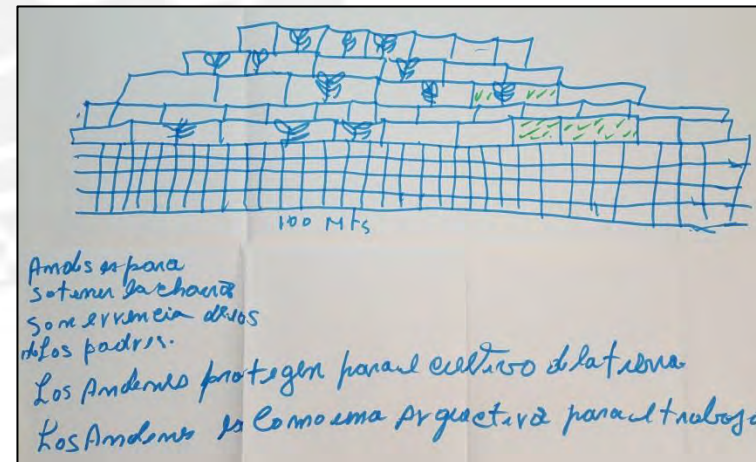 100 Mts
Andes es para
sotener la chacra
son errencia delos
de los padres.
Los Andenes protegen para el cultivo de la tierra
Los Andenes es Como una Arquectiva para el trabajo